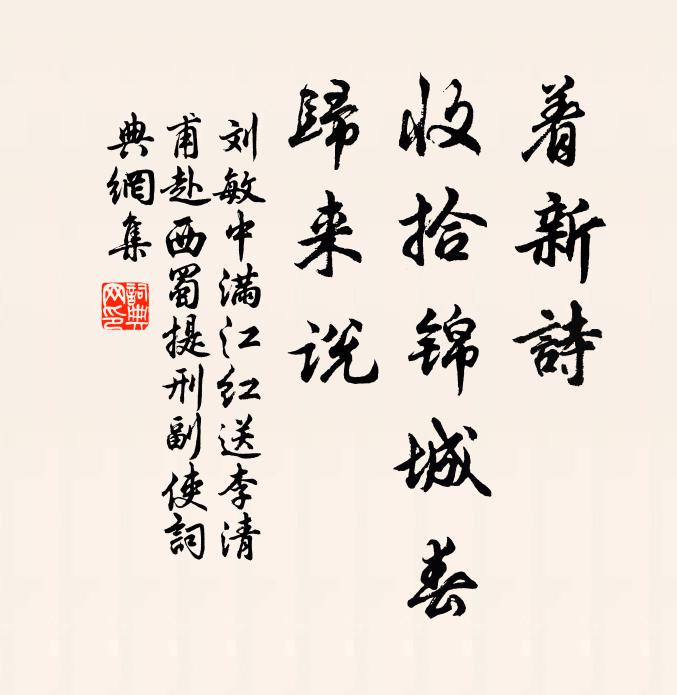 着新詩
收拾錦城春
歸来説
刘敏中满江红送李清
甫赴西蜀提刑副使詞
典網集
詞典网印